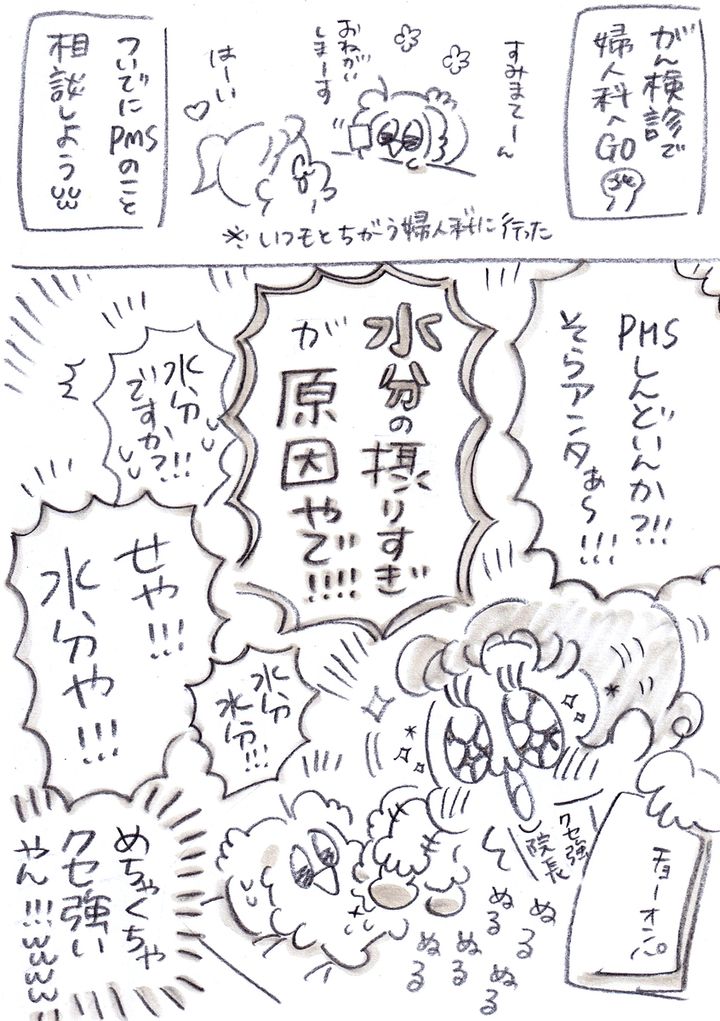 がん検診で
婦人科へGO
すみませーん
おねがい
しまーす
はーい
ついでに
PMSのこと
相談しよう
※いつもとちがう婦人科に行った
PMS
しんどいんか?!!
そらアンタぁ〜!!!
水分の摂りすぎ
が原因やで!!!!
水分
ですか?!!!
せや!!!
水分や!!!
水分
水分!!!
クセ強
院長
チョーオンパ
ぬる
ぬる
ぬる
ぬる
ぬる
めちゃくちゃ
クセ強い
やん!!!www